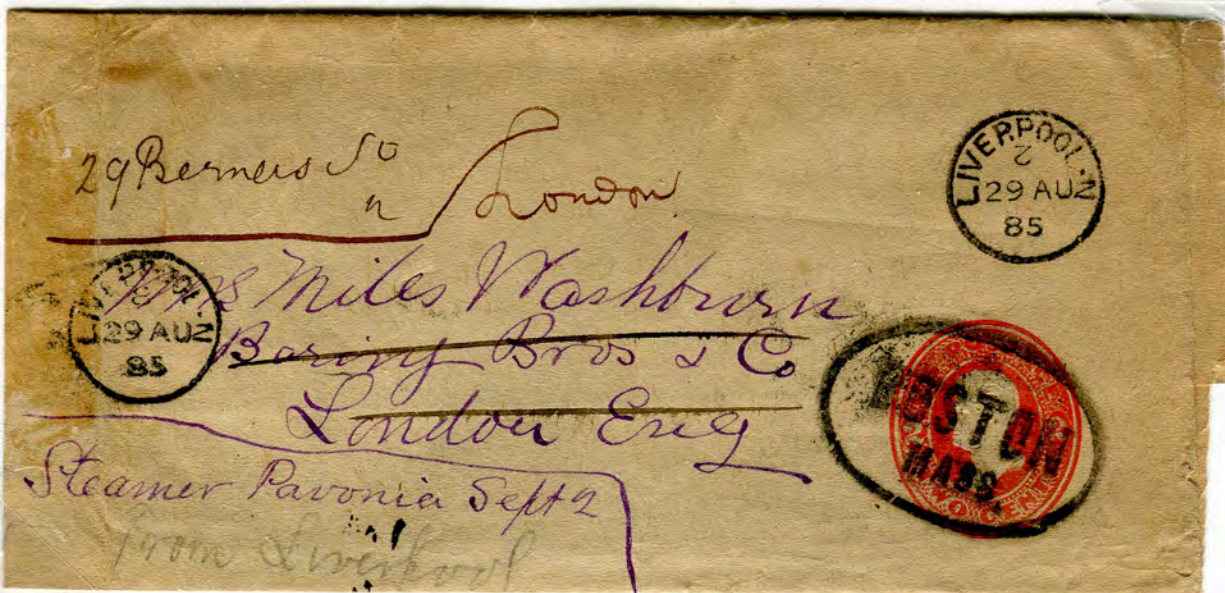 29 Berners St
" London
LIVERPOOL.N
Z
29 AU
85
LIVERPOOL.N
29 AU
85
Mrs Miles Washburn
Baring Bros & Co
London Eng
BOSTON
MASS.
TWO CENTS
Steamer Pavonia Sept 2
from Liverpool